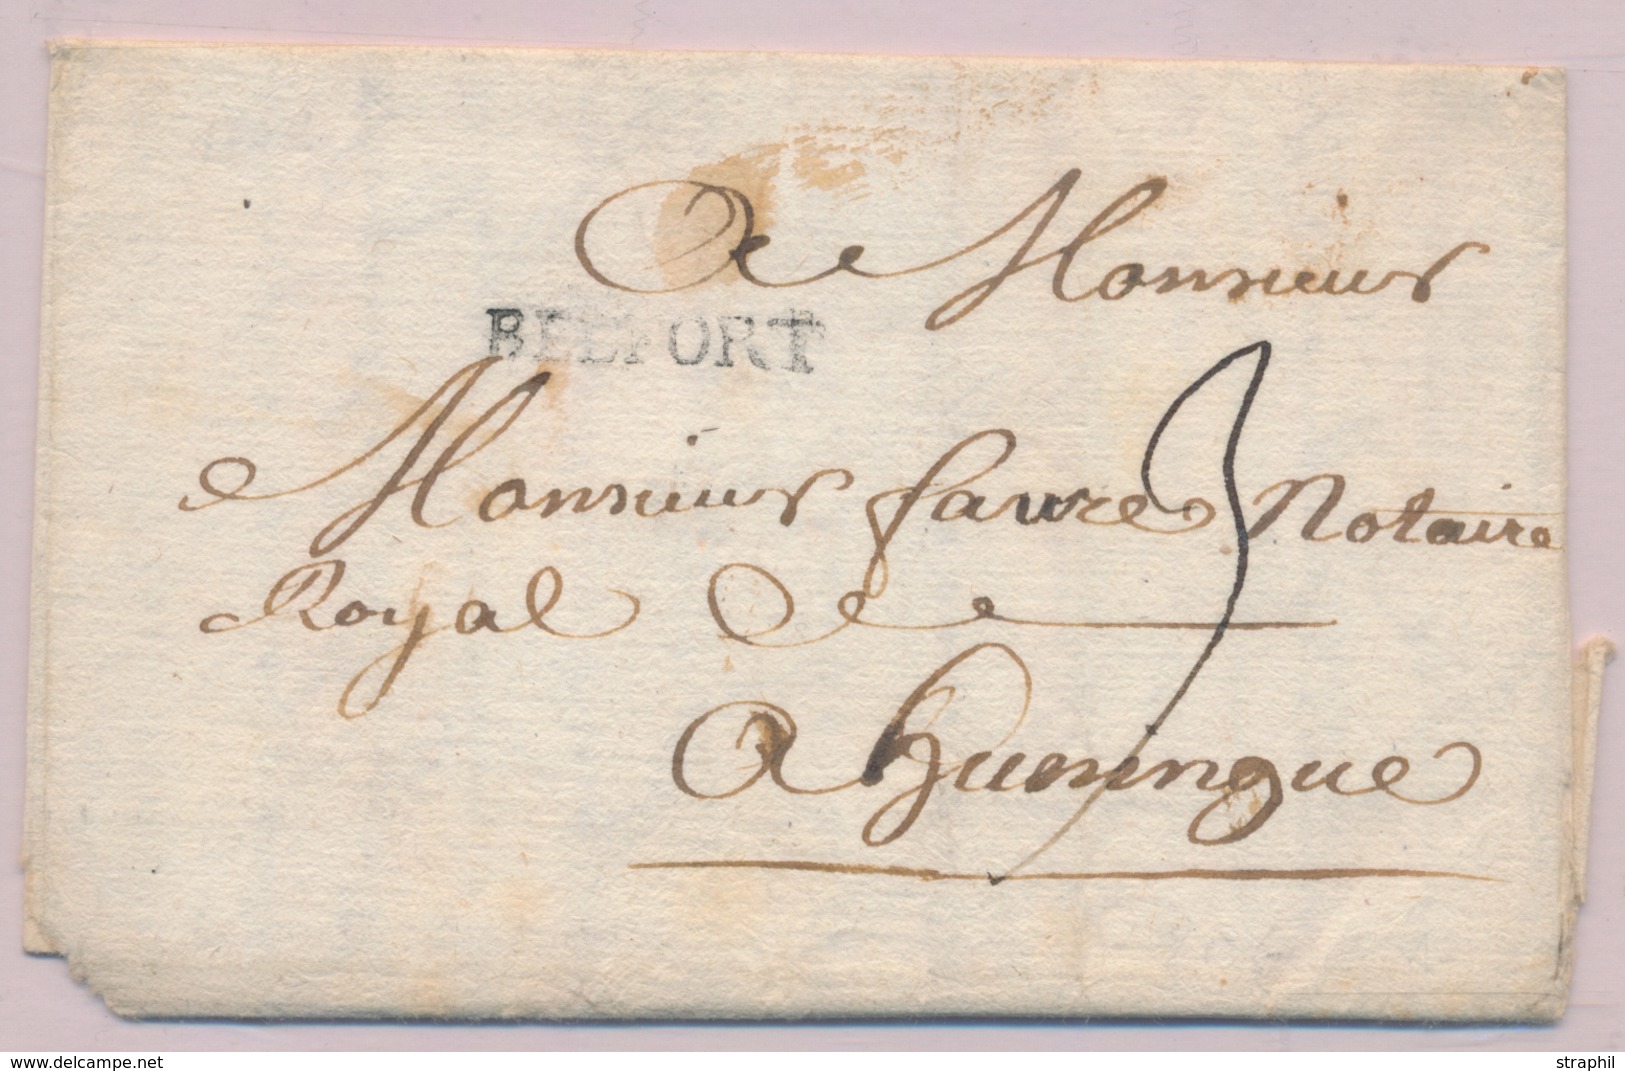 A Monsieur
BELFORT
Monsieur favre Notaire
Royal
A hueningue
www.delcampe.net
straphil